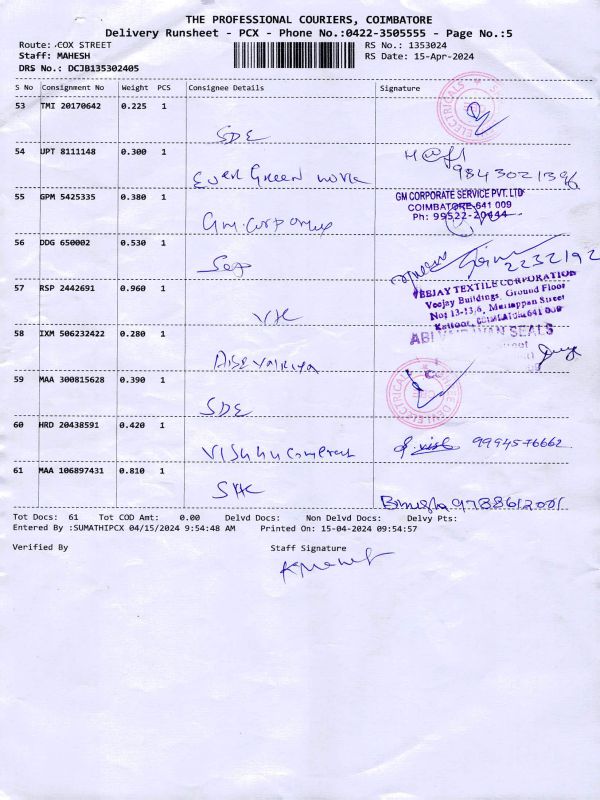 THE PROFESSIONAL COURIERS, COIMBATORE
Delivery Runsheet - PCX - Phone No.:0422-3505555 - Page No.:5
Route: COX STREET
RS No.: 1353024
Staff: MAHESH
RS Date: 15-Apr-2024
DRS No.: DCJB135302405
S No Consignment No Weight PCS Consignee Details Signature
53 TMI 20170642 0.225 1
SDE
54 UPT 8111148 0.300 1
Ever Green work
9843021396
55 GPM 5425335 0.380 1
GM CORPORATE SERVICE PVT. LTD
COIMBATORE-641 009
Ph: 99522-20444
Gm corporate
56 DDG 650002 0.530 1
2232192
57 RSP 2442691 0.960 1
VEEJAY TEXTILE CORPORATION
Veejay Buildings, Ground Floor
No: 13-13/6, Mariappan Street
Kattoor, COIMBATORE-641 009
58 IXM 506232422 0.280 1
SEALS
59 MAA 300815628 0.390 1
SDE
60 HRD 20438591 0.420 1
99945 76662
61 MAA 106897431 0.810 1
9788612001
Tot Docs: 61 Tot COD Amt: 0.00 Delvd Docs: Non Delvd Docs: Delvy Pts:
Entered By :SUMATHIPCX 04/15/2024 9:54:48 AM Printed On: 15-04-2024 09:54:57
Verified By Staff Signature